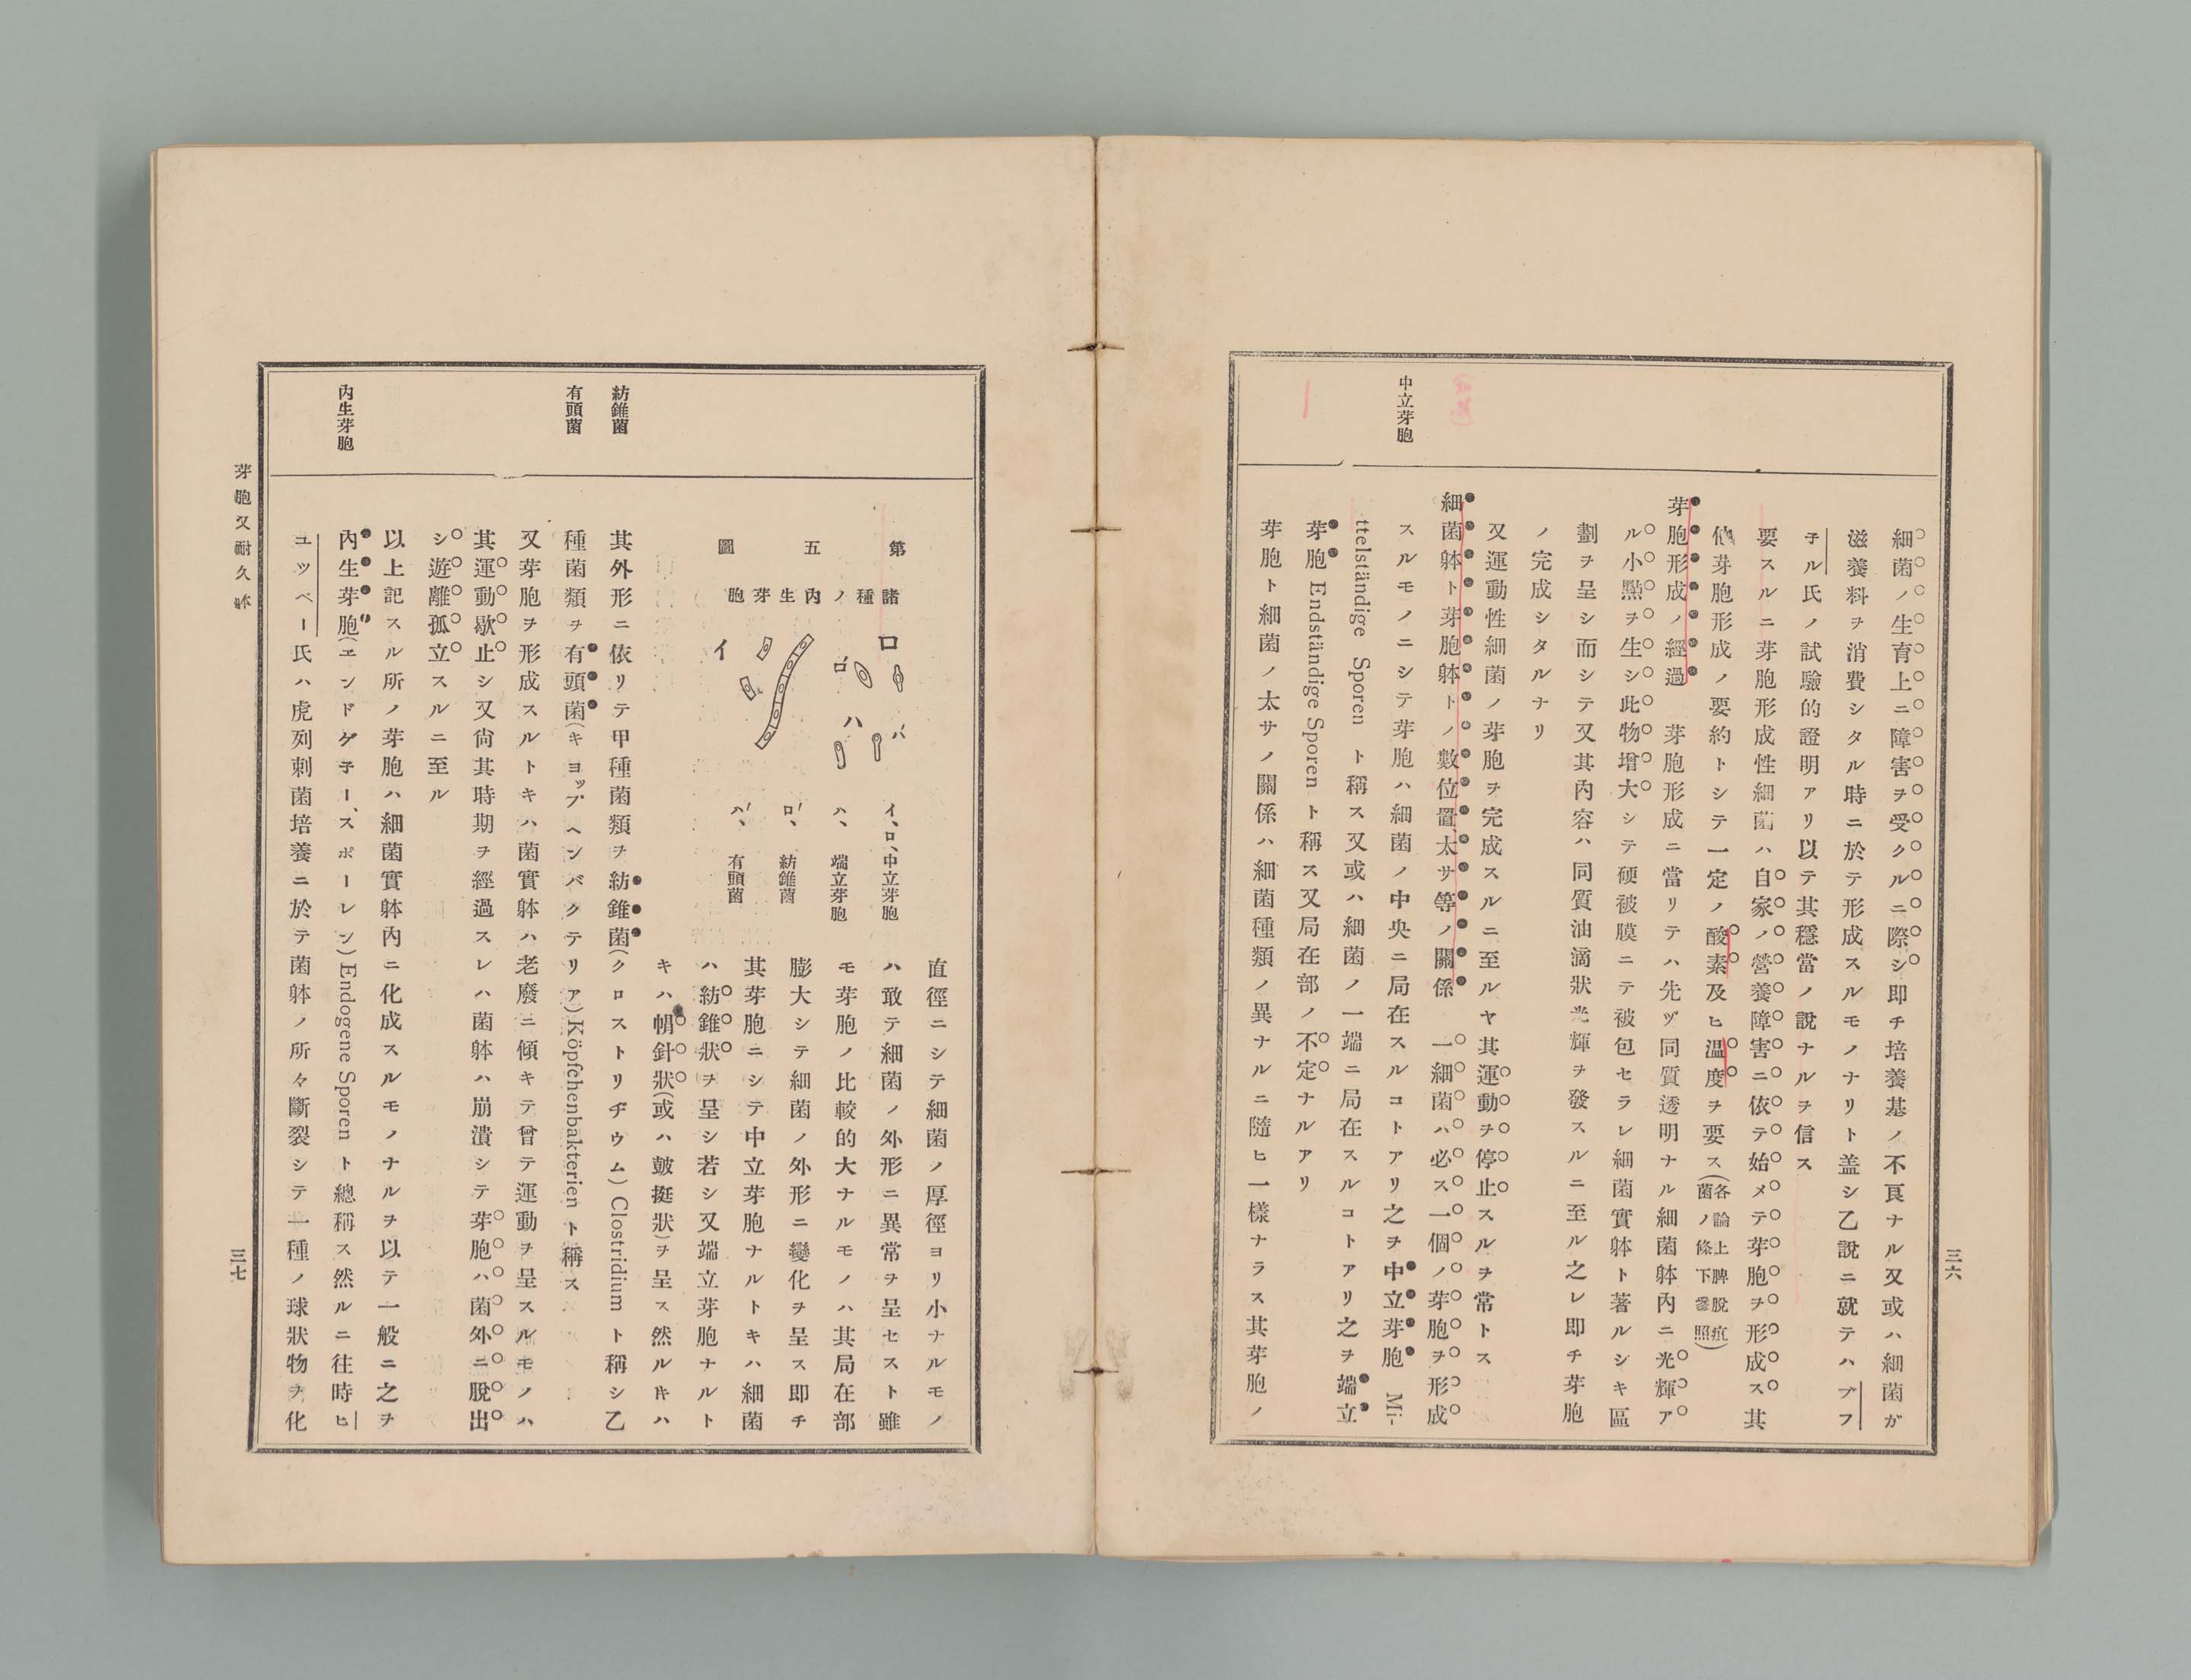 中立芽胞
細菌ノ生育上ニ障害ヲ受クルニ際シ即チ培養基ノ不良ナル又或ハ細菌ガ
滋養料ヲ消費シタル時ニ於テ形成スルモノナリト盖シ乙說ニ就テハブフ
子ル氏ノ試驗的證明アリ以テ其穩當ノ說ナルヲ信ス
要スルニ芽胞形成性細菌ハ自家ノ營養障害ニ依テ始メテ芽胞ヲ形成ス其
他芽胞形成ノ要約トシテ一定ノ酸素及ヒ温度ヲ要ス(各論上脾脫疽菌ノ條下參照)
芽胞形成ノ經過 芽胞形成ニ當リテハ先ヅ同質透明ナル細菌躰內ニ光輝ア
ル小㸃ヲ生シ此物增大シテ硬被膜ニテ被包セラレ細菌實躰ト著ルシキ區
劃ヲ呈シ而シテ又其內容ハ同質油滴狀光輝ヲ發スルニ至ル之レ即チ芽胞
ノ完成シタルナリ
又運動性細菌ノ芽胞ヲ完成スルニ至ルヤ其運動ヲ停止スルヲ常トス
細菌躰ト芽胞躰トノ數位置、太サ等ノ關係 一細菌ハ必ス一個ノ芽胞ヲ形成
スルモノニシテ芽胞ハ細菌ノ中央ニ局在スルコトアリ之ヲ中立芽胞 Mi-
ttelständige Sporen ト稱ス又或ハ細菌ノ一端ニ局在スルコトアリ之ヲ端立
芽胞 Endständige Sporen ト稱ス又局在部ノ不定ナルアリ
芽胞ト細菌ノ太サノ關係ハ細菌種類ノ異ナルニ隨ヒ一樣ナラス其芽胞ノ
三六
紡錐菌
有頭菌
內生芽胞
第五圖
諸種ノ內生芽胞
イ
ロ
ロ'
ハ
ハ'
イ、ロ、中立芽胞
ハ、端立芽胞
ロ'、紡錐菌
ハ'、有頭菌
直徑ニシテ細菌ノ厚徑ヨリ小ナルモノ
ハ敢テ細菌ノ外形ニ異常ヲ呈セスト雖
モ芽胞ノ比較的大ナルモノハ其局在部
膨大シテ細菌ノ外形ニ變化ヲ呈ス即チ
其芽胞ニシテ中立芽胞ナルトキハ細菌
ハ紡錐狀ヲ呈シ若シ又端立芽胞ナルト
キハ帽針狀(或ハ皷挺狀)ヲ呈ス然ルキハ
其外形ニ依リテ甲種菌類ヲ紡錐菌(クロストリヂウム)Clostridium ト稱シ乙
種菌類ヲ有頭菌(キヨップヘンバクテリア)Köpfchenbakterien ト稱ス
又芽胞ヲ形成スルトキハ菌實躰ハ老廢ニ傾キテ曾テ運動ヲ呈スルモノハ
其運動歇止シ又尙其時期ヲ經過スレハ菌躰ハ崩潰シテ芽胞ハ菌外ニ脫出
シ遊離孤立スルニ至ル
以上記スル所ノ芽胞ハ細菌實躰內ニ化成スルモノナルヲ以テ一般ニ之ヲ
內生芽胞(エンドゲ子ー、スポーレン)Endogene Sporen ト總稱ス然ルニ往時ヒ
ユツペー氏ハ虎列刺菌培養ニ於テ菌躰ノ所々斷裂シテ一種ノ球狀物ヲ化
芽胞又耐久躰
三七